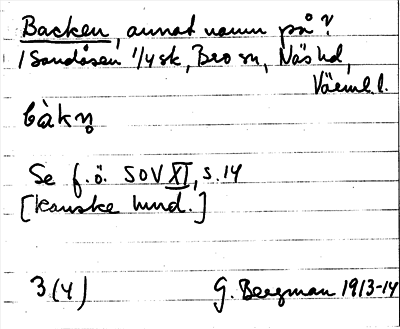 Backen, annat namn på?
/Sandåsen 1/4 sk, Bro sn, Näs hd,
Värml. l.
bàkn̥
Se f.ö. SOV XI, s. 14
[kanske hund.]
3(4) G. Bergman 1913-14